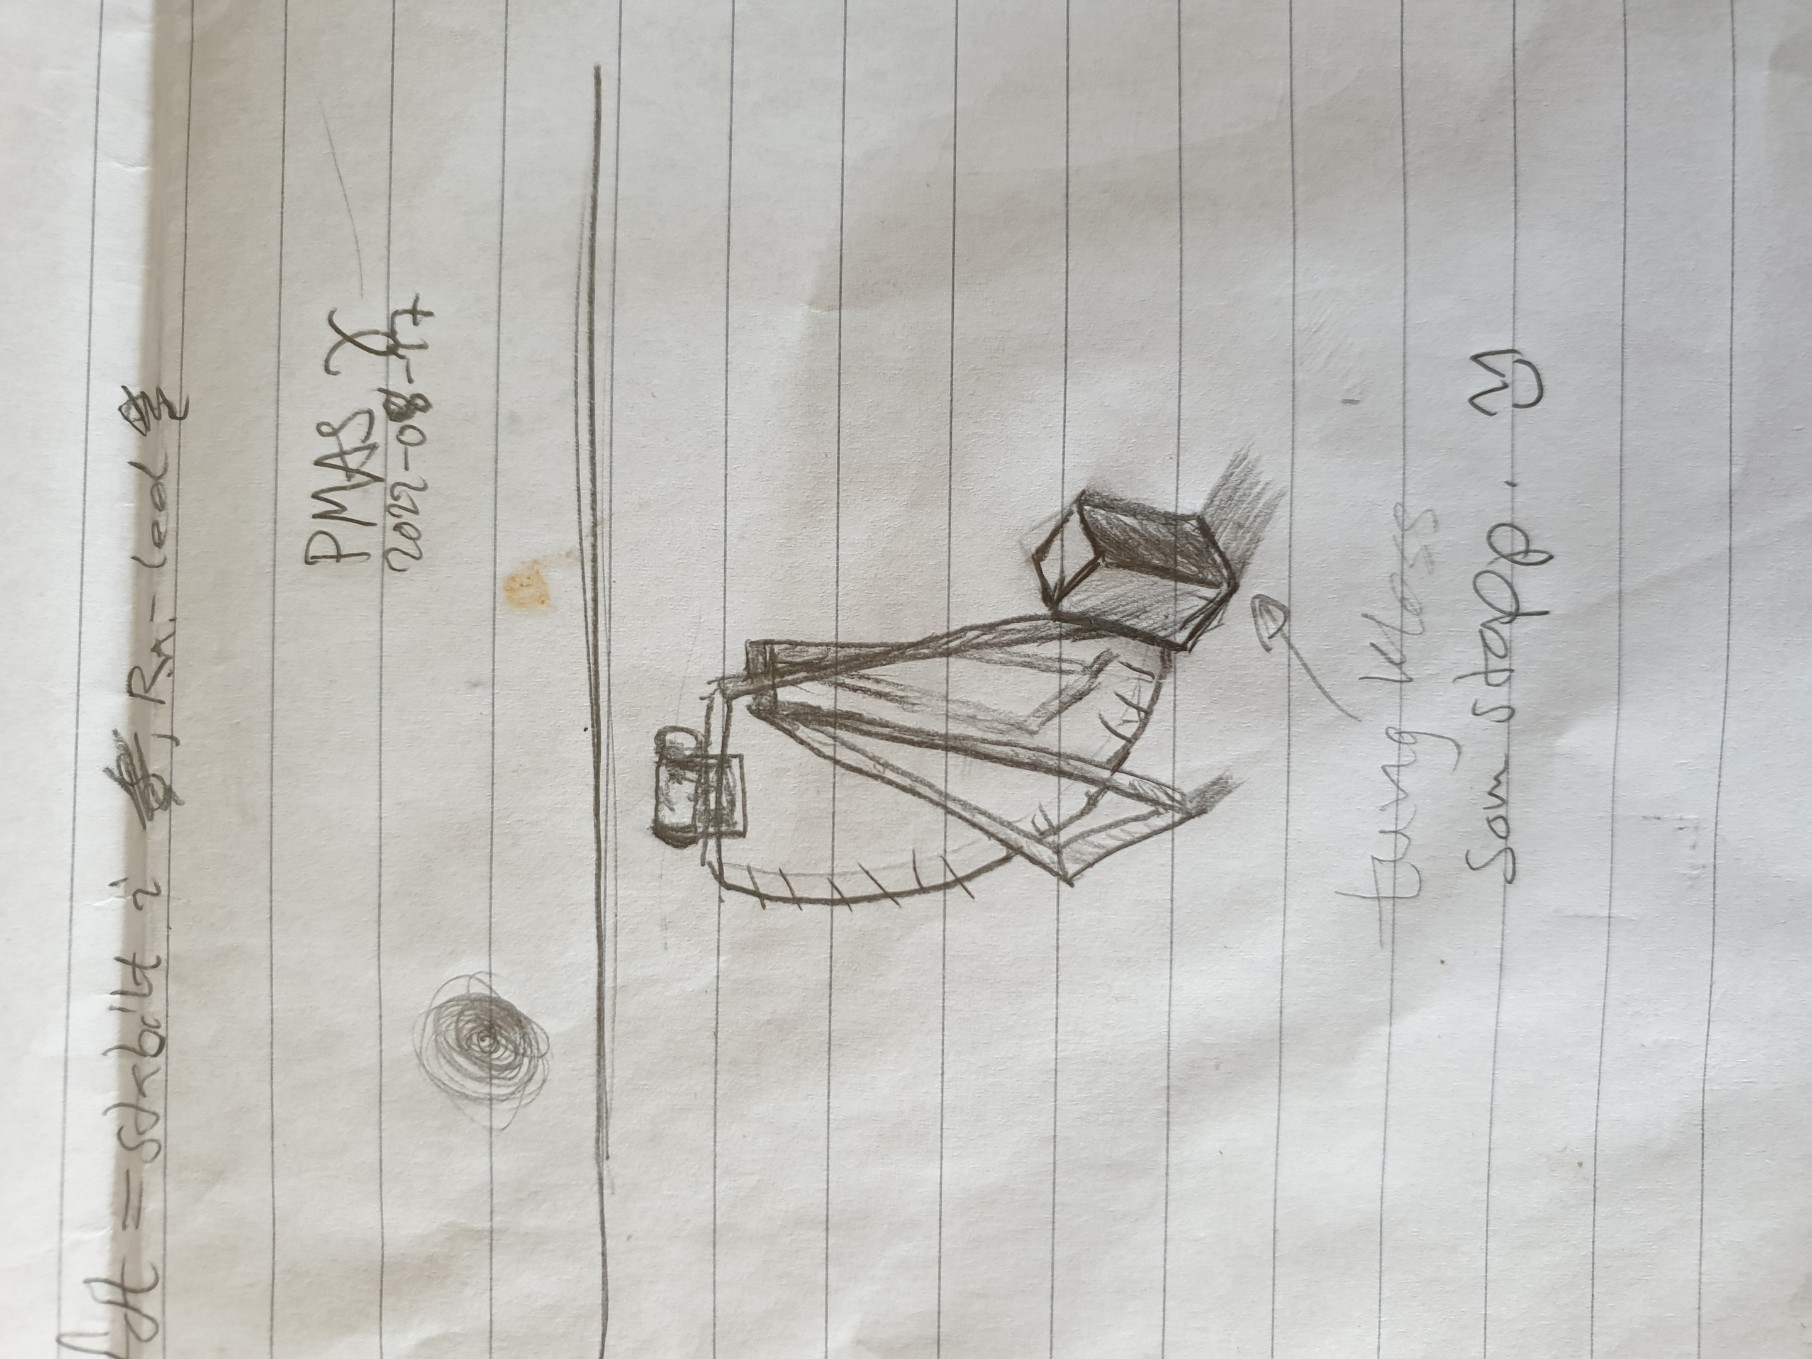 = stabilt i , Rx-led
PMAS γ
2022-08-17
tung kloss
som stapp.